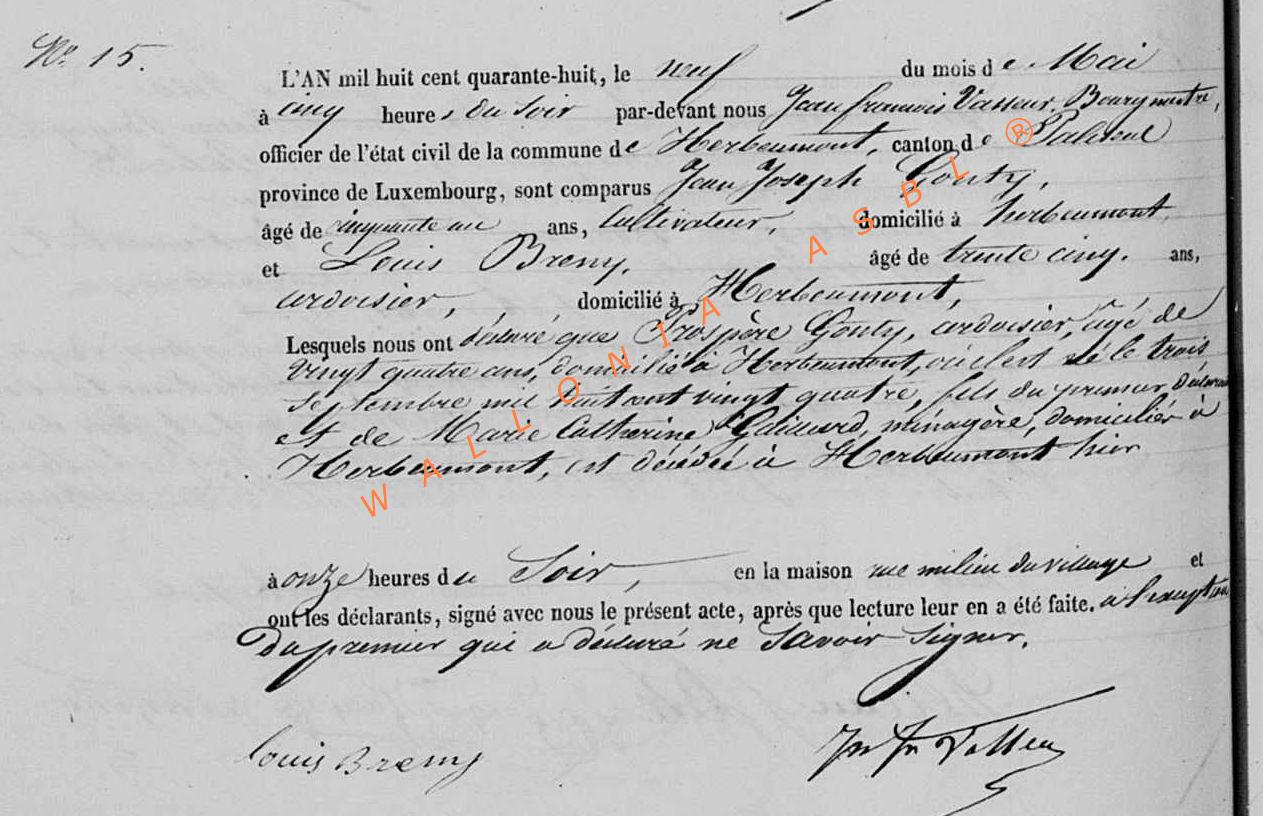 No. 15.
L'AN mil huit cent quarante-huit, le neuf du mois de Mai
à cinq heures du Soir par-devant nous Jean françois Vasseur, Bourgmestre,
officier de l'état civil de la commune de Herbeumont, canton de Paliseul
province de Luxembourg, sont comparus Jean Joseph Gouty,
âgé de cinquante un ans, Cultivateur, domicilié à herbeumont,
et Louis Bremy, âgé de trente cinq. ans,
ardoisier, domicilié à Herbeumont,
Lesquels nous ont déclaré que Prospère Gouty, ardoisier, âgé de
vingt quatre ans, domicilié à Herbeumont, où il est né le trois
Septembre mil huit cent vingt quatre, fils du premier déclarant
et de Marie Catherine ménagère, domiciliés à
Herbeumont, est décédé à Herbeumont hier
à onze heures du Soir, en la maison rue milieu du village et
ont les déclarants, signé avec nous le présent acte, après que lecture leur en a été faite. à l'exception
Du premier qui a déclaré ne Savoir Signer.
Louis Bremy
WALLONIA ASBL ®